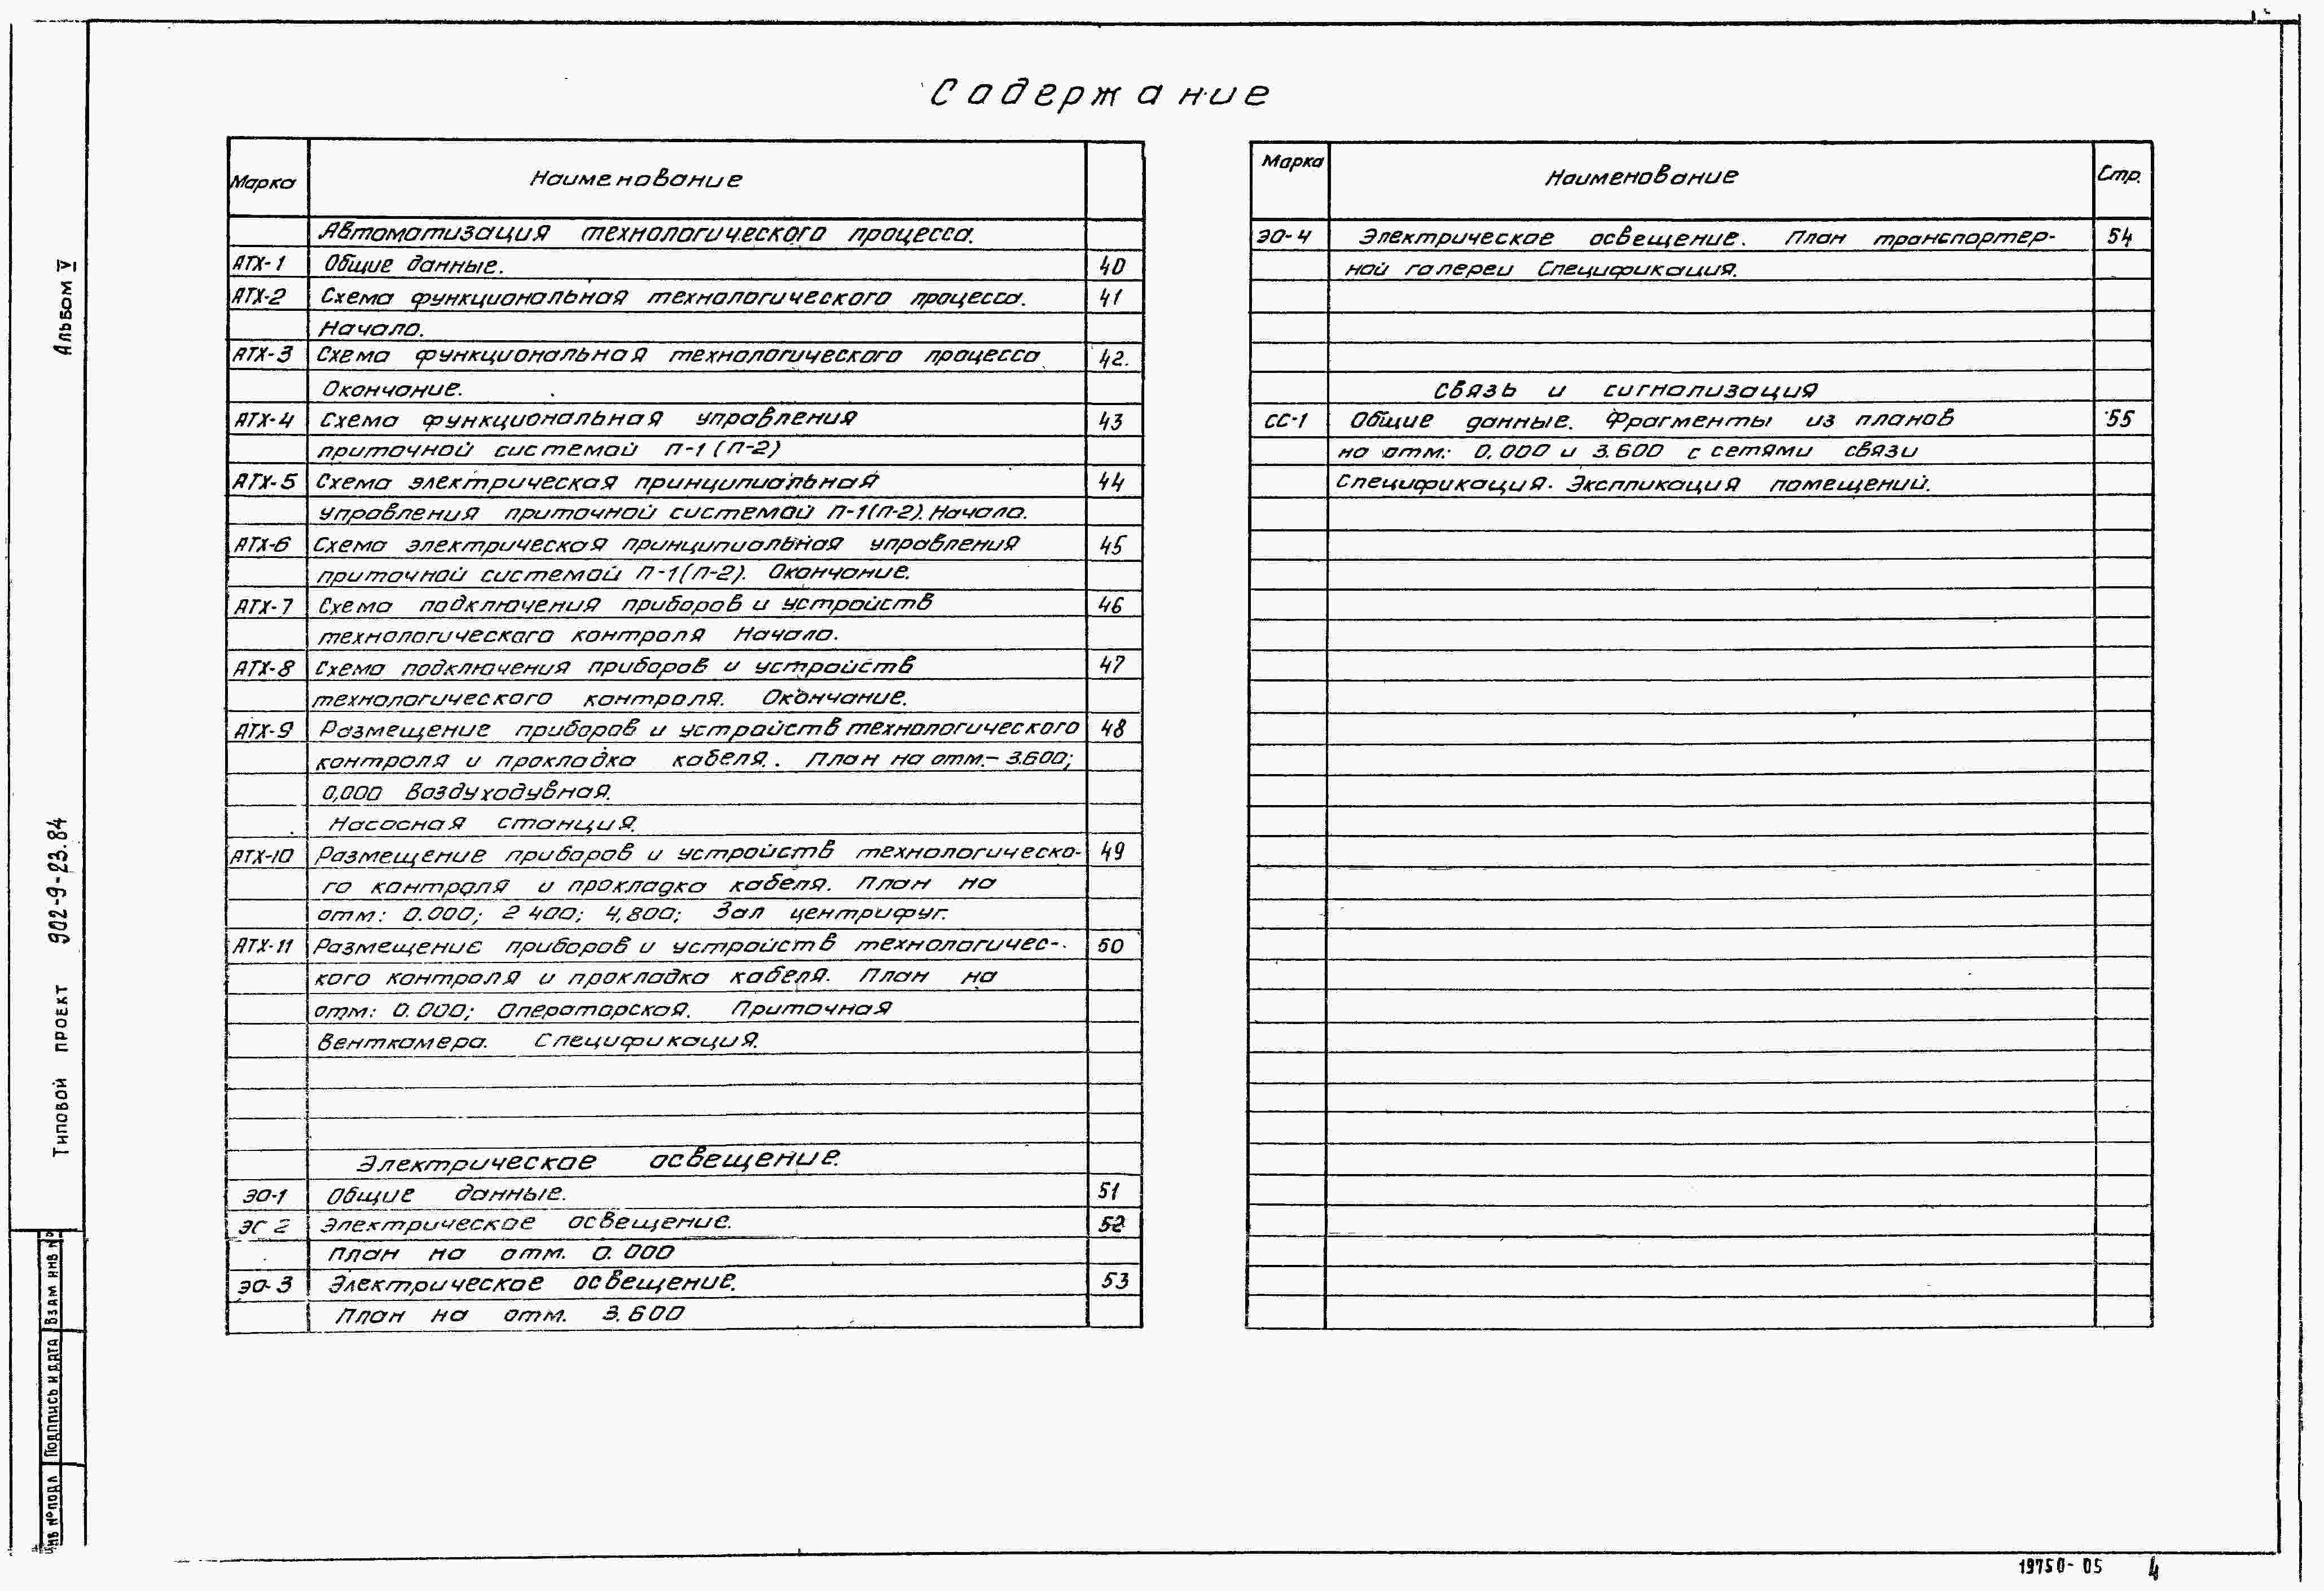 Содержание
Марка
Наименование
Автоматизация технологического процесса.
АТХ-1 Общие данные. 40
АТХ-2 Схема функциональная технологического процесса. 41
Начало.
АТХ-3 Схема функциональная технологического процесса 42.
Окончание.
АТХ-4 Схема функциональная управления 43
приточной системой П-1 (П-2)
АТХ-5 Схема электрическая принципиальная 44
управления приточной системой П-1(П-2). Начало.
АТХ-6 Схема электрическая принципиальная управления 45
приточной системой П-1(П-2). Окончание.
АТХ-7 Схема подключения приборов и устройств 46
технологического контроля Начало.
АТХ-8 Схема подключения приборов и устройств 47
технологического контроля. Окончание.
АТХ-9 Размещение приборов и устройств технологического 48
контроля и прокладка кабеля. План на отм.- 3.600;
0,000 Воздуходувная.
Насосная станция.
АТХ-10 Размещение приборов и устройств технологическо- 49
го контроля и прокладка кабеля. План на
отм: 0.000; 2 400; 4,800; Зал центрифуг.
АТХ-11 Размещение приборов и устройств технологичес- 50
кого контроля и прокладка кабеля. План на
отм: 0.000; Операторская. Приточная
венткамера. Спецификация.
Электрическое освещение.
ЭО-1 Общие данные. 51
ЭО 2 Электрическое освещение. 52
План на отм. 0.000
ЭО-3 Электрическое освещение. 53
План на отм. 3.600
Марка
Наименование
Стр.
ЭО-4 Электрическое освещение. План транспортер- 54
ной галереи Спецификация.
Связь и сигнализация
СС-1 Общие данные. Фрагменты из планов 55
на отм.: 0.000 и 3.600 с сетями связи
Спецификация. Экспликация помещений.
Альбом V
Типовой проект 902-9-23.84
Взам инв №
Подпись и дата
Инв № подл
19750-05 4